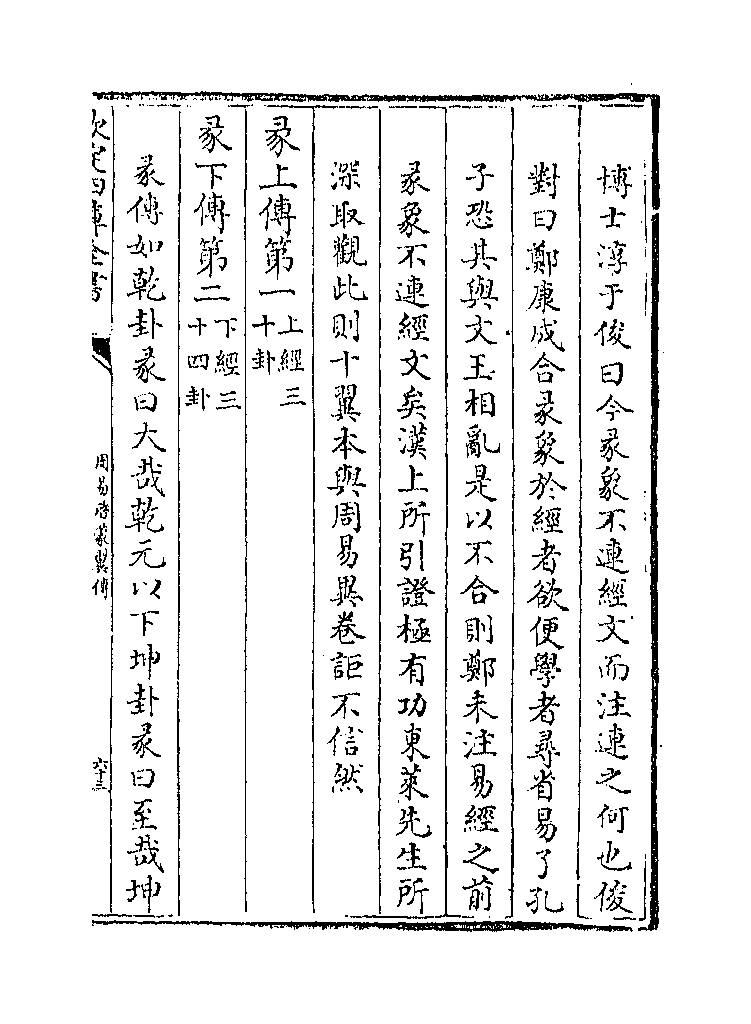 博士淳于俊曰今彖象不連經文而注連之何也俊
對曰鄭康成合彖象於經者欲便學者尋省易了孔
子恐其與文王相亂是以不合則鄭未注易經之前
彖象不連經文矣漢上所引證極有功東萊先生所
深取觀此則十翼本與周易異卷詎不信然
彖上傳第一上經三十卦
彖下傳第二下經三十四卦
彖傳如乾卦彖曰大哉乾元以下坤卦彖曰至哉坤
欽定四庫全書
周易啓蒙翼傳
六十三